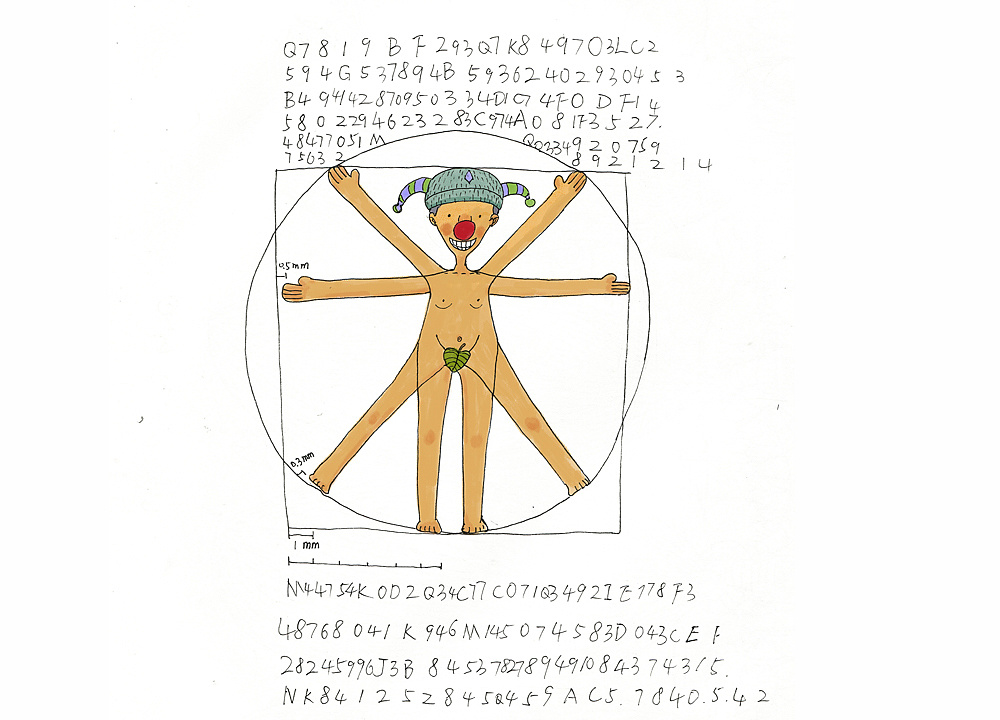 Q7 8 1 9 B F 293 Q7 K8 49703LC2
594G537894B 5936240293045 3
B4 94142870950334D1C7 4F0 D F1 4
58 0 22946232 83C974A0 8 173527.
48477051M Q0334920759
75632 8921214
0.5mm
0.3mm
1 mm
M44754K 0D2Q34C77C071Q3492IE178F3
48768 041 K 946M145074583D 043CEF
28245996J3B 8453782789491084374315.
NK84125284504459AC5.7840.5.42